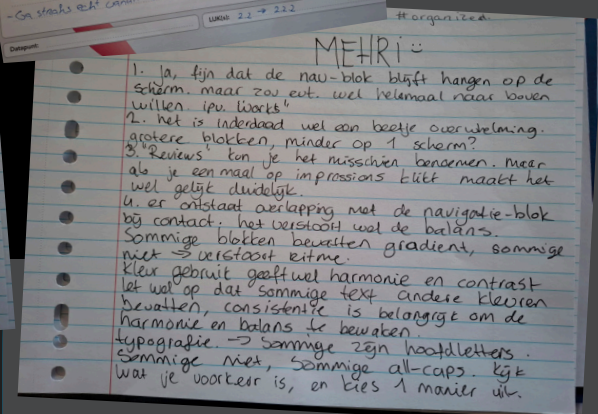 -Ga straks echt
Datapunt:
2.2 → 2.2.2
#organized
MEHRI
1. Ja, fijn dat de nav-blok blijft hangen op de
scherm. maar zou evt. wel helemaal naar boven
willen ipv. works"
2. het is inderdaad wel een beetje overwhelming.
grotere blokken, minder op 1 scherm?
3. "Reviews" kon je het misschien benoemen. maar
als je eenmaal op impressions klikt maakt het
wel gelijk duidelijk.
4. er ontstaat overlapping met de navigatie-blok
bij contact. het verstoort wel de balans.
Sommige blokken bevatten gradient, sommige
niet → verstoort ritme.
kleur gebruik geeft wel harmonie en contrast
let wel op dat sommige text andere kleuren
bevatten, consistentie is belangrijk om de
harmonie en balans te bewaken.
typografie. → Sommige zijn hoofdletters.
Sommige niet, sommige all-caps. kijk
wat je voorkeur is, en kies 1 manier uit.